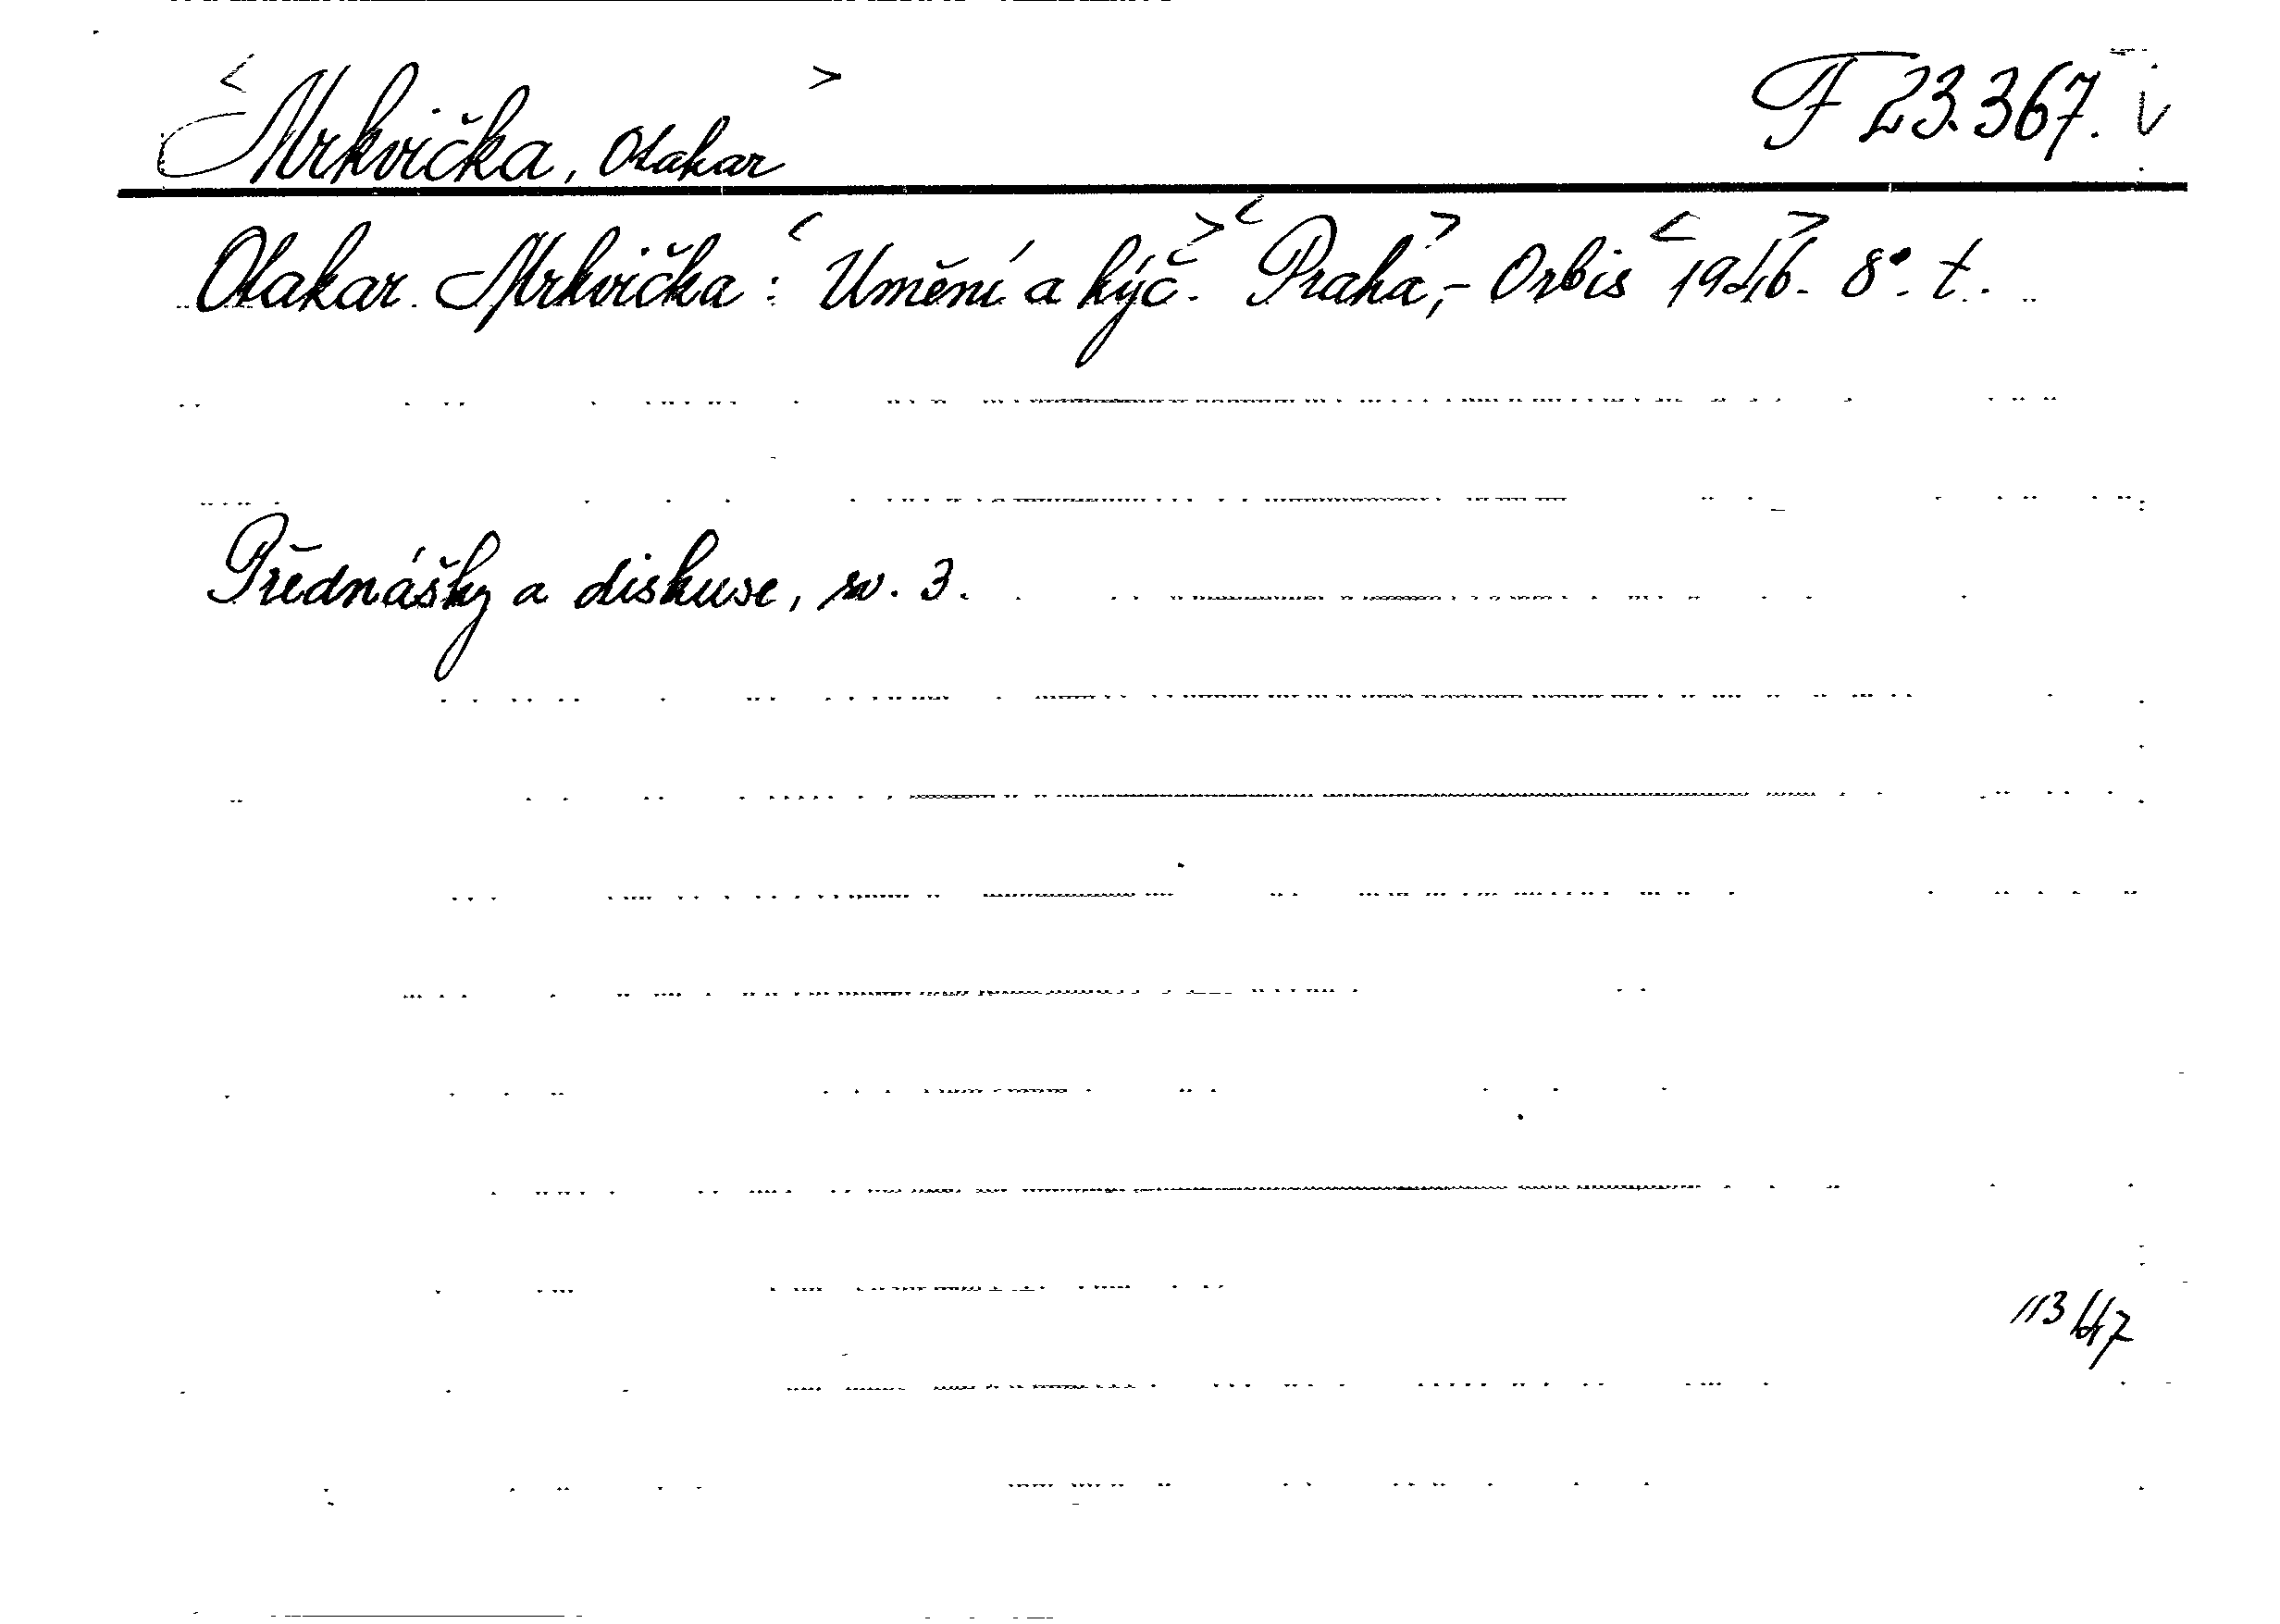 <Mrkvička, Otakar> F 23.367. V
Otakar Mrkvička: <Umění a kýč.> <Praha,>- Orbis <1946>. 8°. t.
Přednášky a diskuse, sv. 3.
113/47